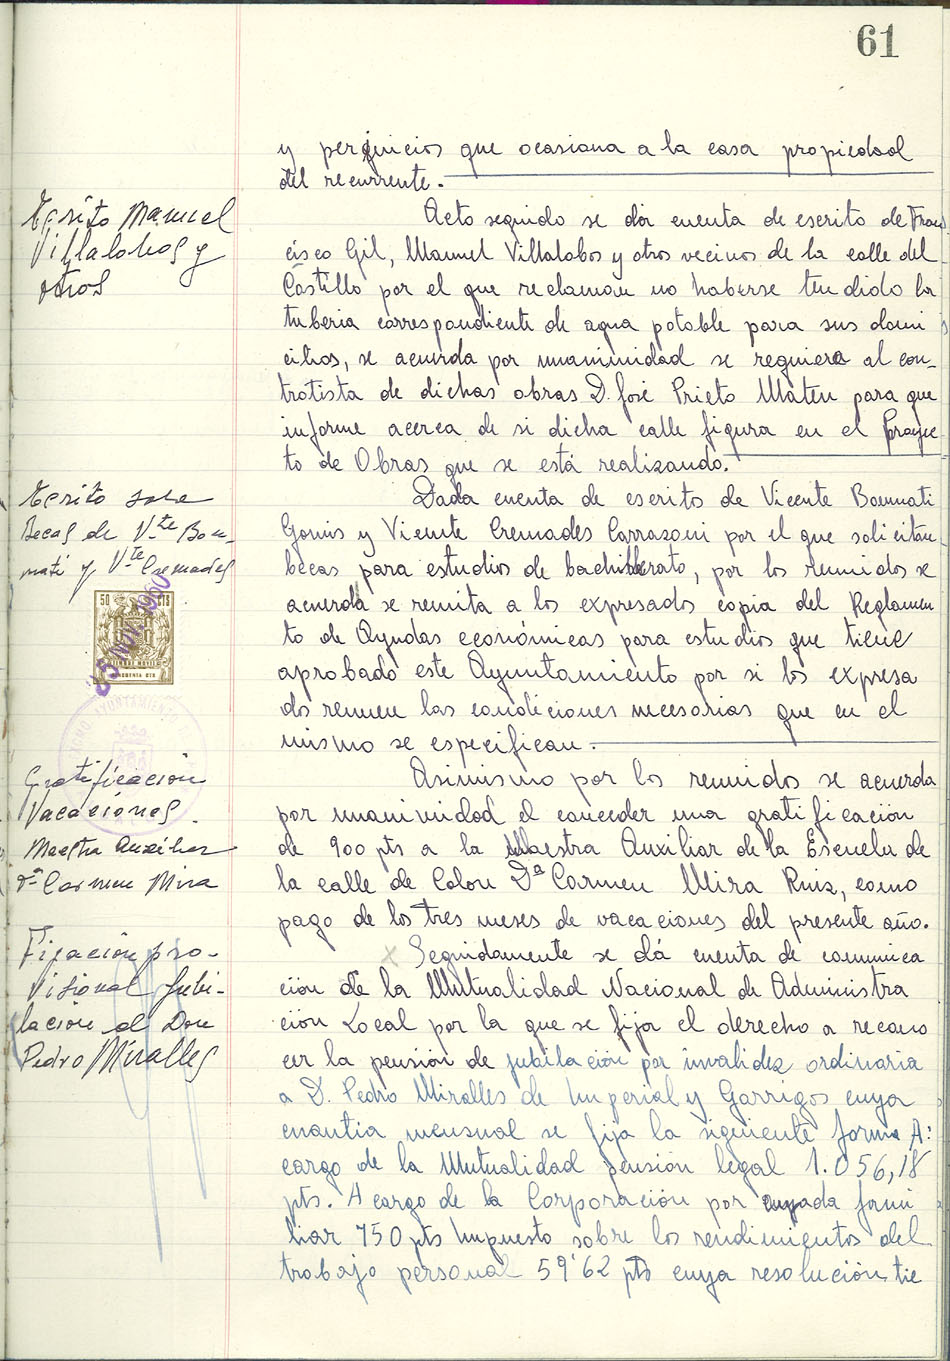 61
y perjuicios que ocasiona a la casa propiedad
del recurrente.
Escrito Manuel
Villalobos y
otros
Acto seguido se da cuenta de escrito de Fran
cisco Gil, Manuel Villalobos y otros vecinos de la calle del
Castillo por el que reclaman no haberse tendido la
tuberia correspondiente de agua potable para sus domi
cilios, se acuerda por unanimidad se requiera al con-
tratista de dichas obras D. José Prieto Mateu para que
informe acerca de si dicha calle figura en el Proyec-
to de Obras que se está realizando.
Escrito sobre
Becas de Vte Bon-
mati y Vte Cremades
Dada cuenta de escrito de Vicente Bonmati
Gomis y Vicente Cremades Carrasoni por el que solicitan
becas para estudios de bachillerato, por los reunidos se
acuerda se remita a los expresados copia del Reglamen
to de Ayudas económicas para estudios que tiene
aprobado este Ayuntamiento por si los expresa
dos reunen las condiciones necesarias que en el
mismo se especifican.
50 CTS
25 NOV. 1960
TIMBRE MOVIL
AYUNTAMIENTO
Gratificación
Vacaciones.
Maestra Auxiliar
Dª Carmen Mira
Asimismo por los reunidos se acuerda
por unanimidad el conceder una gratificación
de 900 pts a la Maestra Auxiliar de la Escuela de
la calle de Colon Dª Carmen Mira Ruiz, como
pago de los tres meses de vacaciones del presente año.
Fijación pro-
visional Jubi-
lacion a Don
Pedro Miralles
x Seguidamente se dá cuenta de comunica
ción de la Mutualidad Nacional de Administra
ción Local por la que se fija el derecho a recono
cer la pensión de jubilación por invalidez ordinaria
a D. Pedro Miralles de Imperial y Garrigos cuya
cuantia mensual se fija la siguiente forma A:
cargo de la Mutualidad pensión legal 1.056,18
pts. A cargo de la Corporación por ayuda fami
liar 750 pts Impuesto sobre los rendimientos del
trabajo personal 59'62 pts cuya resolución tie